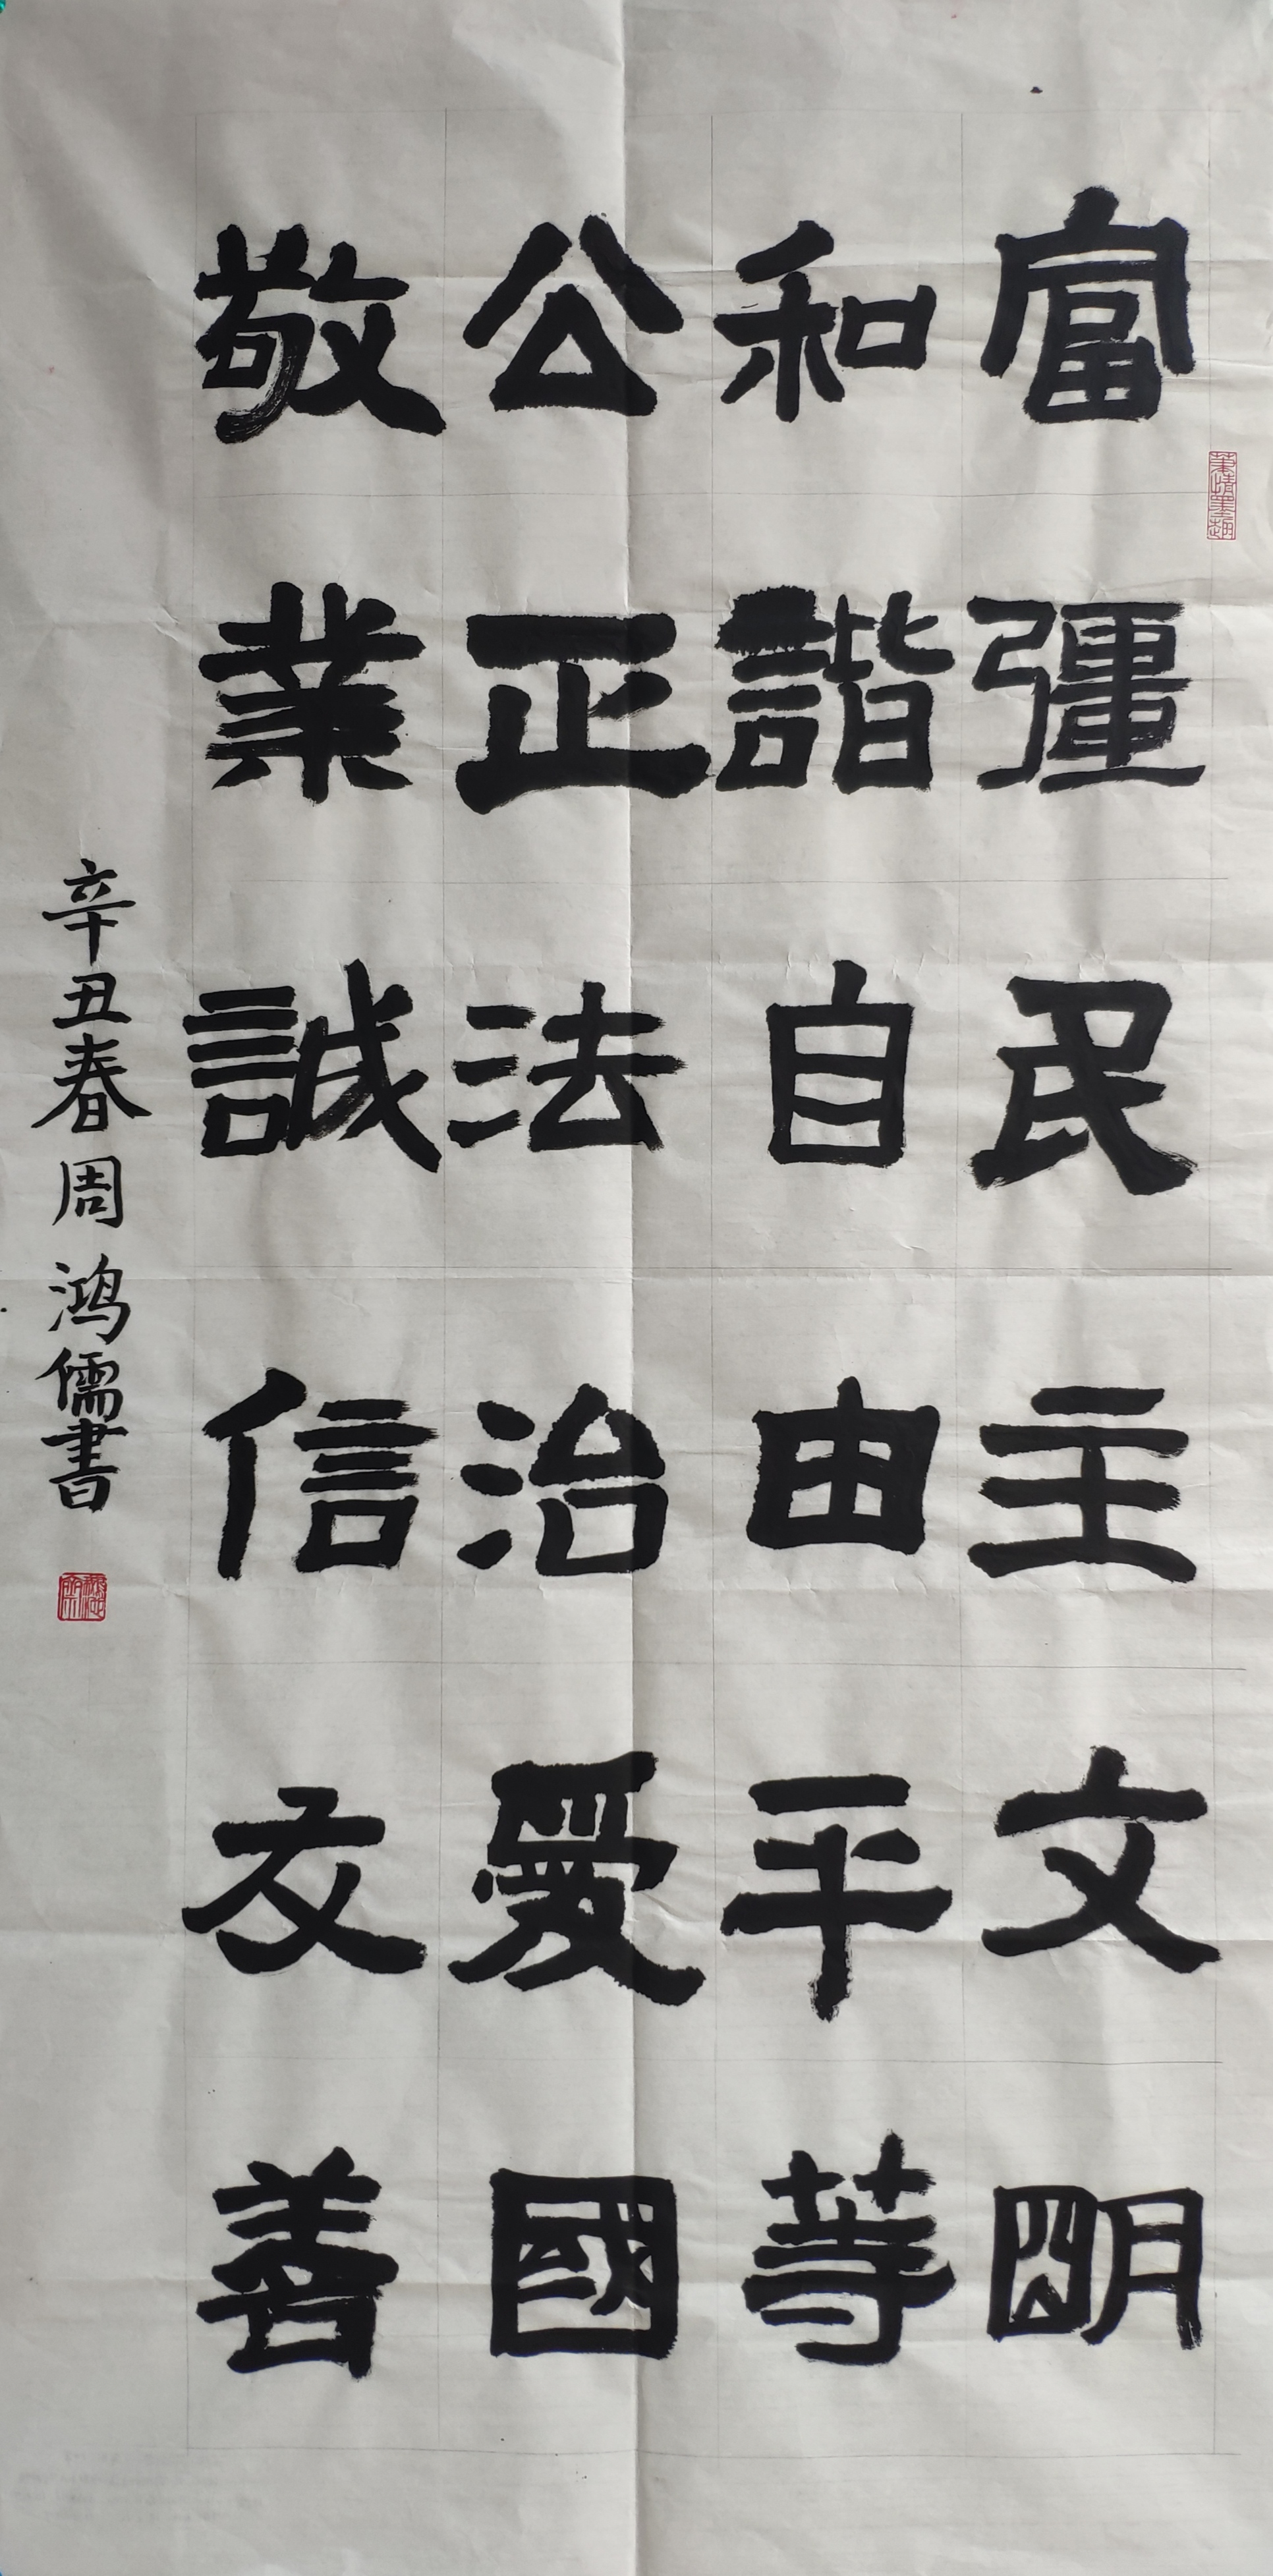 富彊民主文明
和諧自由平等
公正法治愛國
敬業誠信友善
辛丑春周鸿儒書